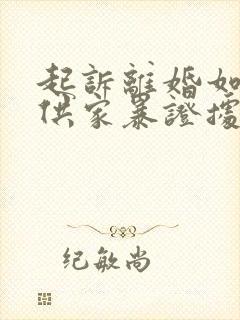 起訴離婚如
供家暴證據
纪敏尚